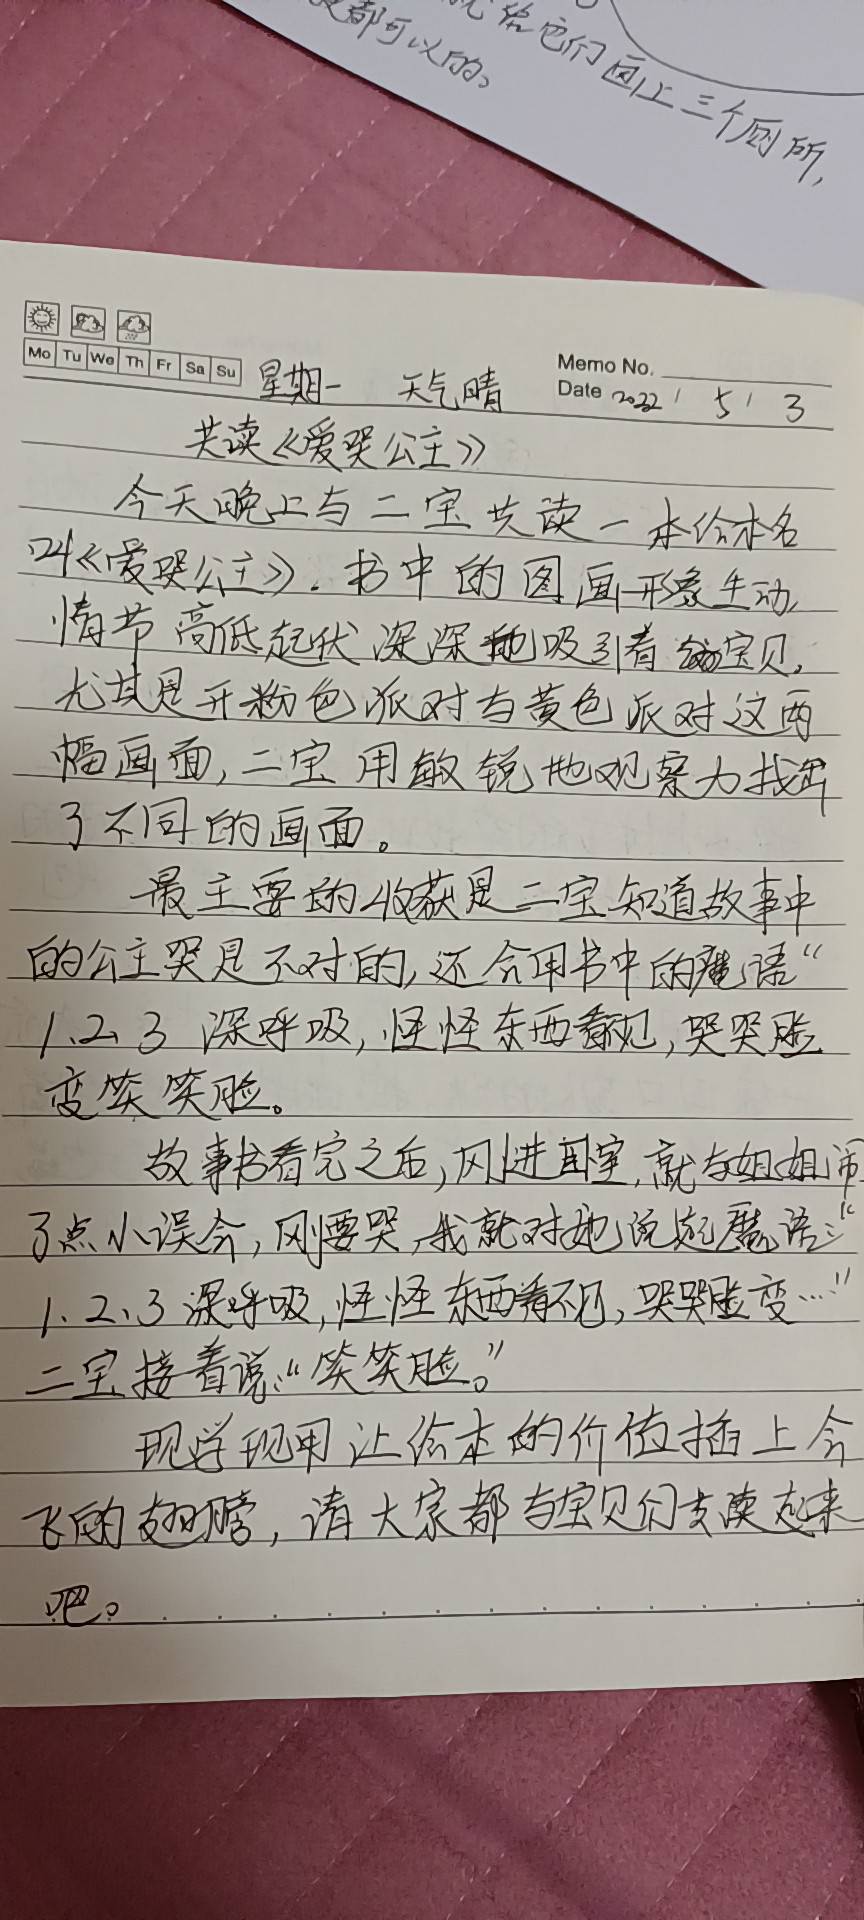 就给它们画上三个厕所,
都可以的。
Mo Tu We Th Fr Sa Su
Memo No.
星期一 天气晴
Date 2022 / 5 / 3
共读《爱哭公主》
今天晚上与二宝共读一本绘本名
叫《爱哭公主》.书中的图画形象生动,
情节高低起伏深深地吸引着宝贝,
尤其是开粉色派对与黄色派对这两
幅画面,二宝用敏锐地观察力找出
了不同的画面。
最主要的收获是二宝知道故事中
的公主哭是不对的,还会用书中的魔语“
1.2、3 深呼吸,怪怪东西看不见,哭哭脸
变笑笑脸。
故事书看完之后,刚进卧室,就与姐姐闹
了点小误会,刚要哭,我就对她说起魔语:“
1、2、3深呼吸,怪怪东西看不见,哭哭脸变…”
二宝接着说:“笑笑脸。”
现学现用让绘本的价值插上会
飞的翅膀,请大家都与宝贝们共读起来
吧。